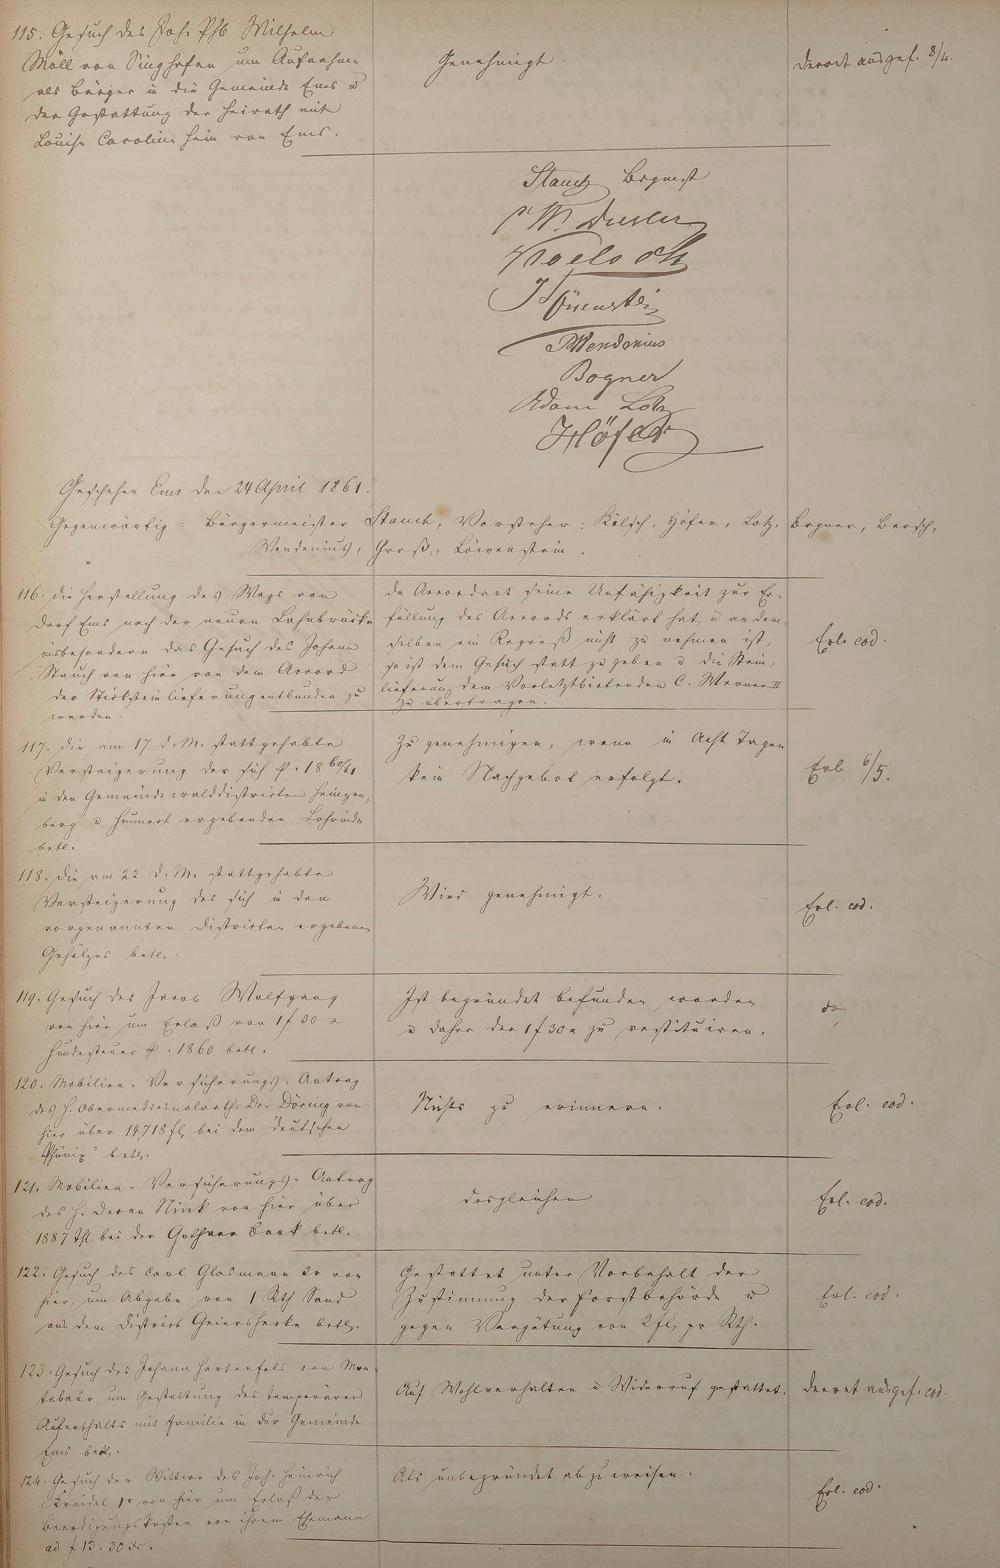 115. Gesuch des Joh. Phb Wilhelm
Möll von Singhofen um Aufnahme
als Bürger in die Gemeinde Ems u
der Gestattung der Heirath mit
Louise Caroline Hein von Ems.
Genehmigt.
Decret ausgef. 8/4.
Stauch Brgmst
Kölsch
Löwenstein
Wendenius
Bogner
Adam Lotz
Höfer
Geschehen Ems den 24 April 1861.
Gegenwärtig: Bürgermeister Stauch, Vorsteher: Kölsch, Höfer, Lotz, Bogner, Bersch,
Wendenius, Groß, Löwenstein.
116. die Herstellung des Wegs von
Dorf Ems nach der neuen Lahnbrücke
insbesondere das Gesuch des Johann
Strauch von hier von dem Accord
der Stücksteinlieferung entbunden zu
werden.
Da Accordant seine Unfähigkeit zur Er-
füllung des Accords erklärt hat, u an dem-
selben ein Regreß nicht zu nehmen ist,
so ist dem Gesuch statt zu geben u die Stein-
lieferung dem Vorletztbietenden C. Werner II
zu übertragen.
Erl. eod.
117. die am 17 d. M. stattgehabte
Versteigerung der sich p. 1860/61
in den Gemeindewalddistrikten
berg u ergebenden Lohrinde
betr.
Zu genehmigen, wenn in Acht Tagen
kein Nachgebot erfolgt.
Erl. 6/5.
118. die am 22 d. M. stattgehabte
Versteigerung des sich in den
vorgenannten Districten ergebenen
Gehölzes betr.
Wird genehmigt.
Erl. eod.
119. Gesuch des Jacob Wolfgang
von hier um Erlaß von 1 f 30 x
Hundesteuer p. 1860 betr.
Ist begründet befunden worden
u daher der 1 f 30 x zu restituiren.
do
120. Mobilien-Versicherungs-Antrag
des H. Obermedicinalrath Dr. Döring von
hier über 14,718 fl bei dem deutschen
Phönix betr.
Nichts zu erinnern.
Erl. eod.
121. Mobilien-Versicherungs-Antrag
des H. Decan Nink von hier über
1887 Thl bei der Gothaer Bank betr.
desgleichen
Erl. eod.
122. Gesuch des Carl Glasmann 2r von
hier, um Abgabe von 1 Rth Sand
aus dem District Geiershecke betr.
Gestattet unter Vorbehalt der
Zustimmung der Forstbehörde u
gegen Vergütung von 2 fl pr Rth.
Erl. eod.
123. Gesuch des Johann Hartenfels von Mon-
tabaur um Gestattung des temporären
Aufenthalts mit Familie in der Gemeinde
Ems betr.
Auf Wohlverhalten u Widerruf gestattet.
Decret ausgef. eod.
124. Gesuch der Wittwe des Joh. Heinrich
Kreidel 1r von hier um Erlaß der
Beerdigungskosten von ihrem Ehemann
ad f 13. 30 x.
Als unbegründet abzuweisen.
Erl. eod.